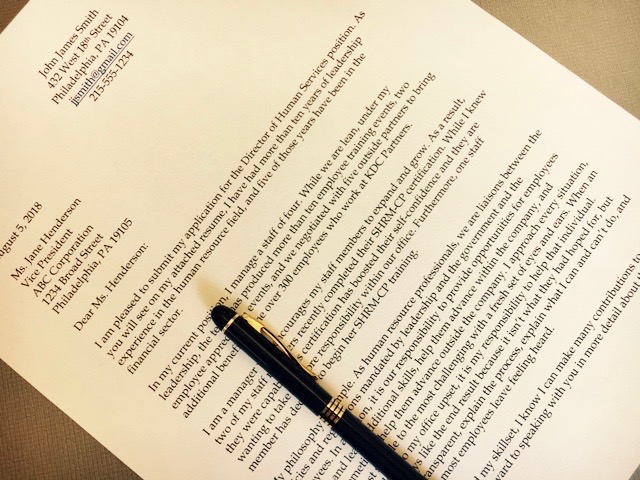 John James Smith
432 West 18th Street
Philadelphia, PA 19104
jjsmith@gmail.com
215-555-1234
ugust 5, 2018
Ms. Jane Henderson
Vice President
ABC Corporation
1234 Broad Street
Philadelphia, PA 19105
Dear Ms. Henderson:
I am pleased to submit my application for the Director of Human Services position. As
you will see on my attached resume, I have had more than ten years of leadership
experience in the human resource field, and five of those years have been in the
financial sector.
In my current I manage a staff of four. While we are lean, under my
leadership, the produced more than ten employee training events, two
employee events, and we negotiated with five outside partners to bring
additional over 300 employees who work at KDC Partners.
I am a encourages my staff members to expand and grow. As a result,
two of my staff recently completed their SHRM-CP certification. While I knew
they were certification has boosted their self-confidence and they are
wanting to take responsibility within our office. Furthermore, one staff
member has to begin her SHRM-CP training.
My philosophy As human resource professionals, we are liaisons between the
mandated by leadership and the government and the
In it is our responsibility to provide opportunities for employees
additional skills, help them advance within the company, and
help them advance outside the company. I approach every situation,
to the most challenging with a fresh set of eyes and ears. When an
to my office upset, it is my responsibility to help that individual.
like the end result because it isn't what they had hoped for, but
transparent, explain the process, explain what I can and can't do, and
most employees leave feeling heard.
my skillset, I know I can make many contributions to
to speaking with you in more detail about